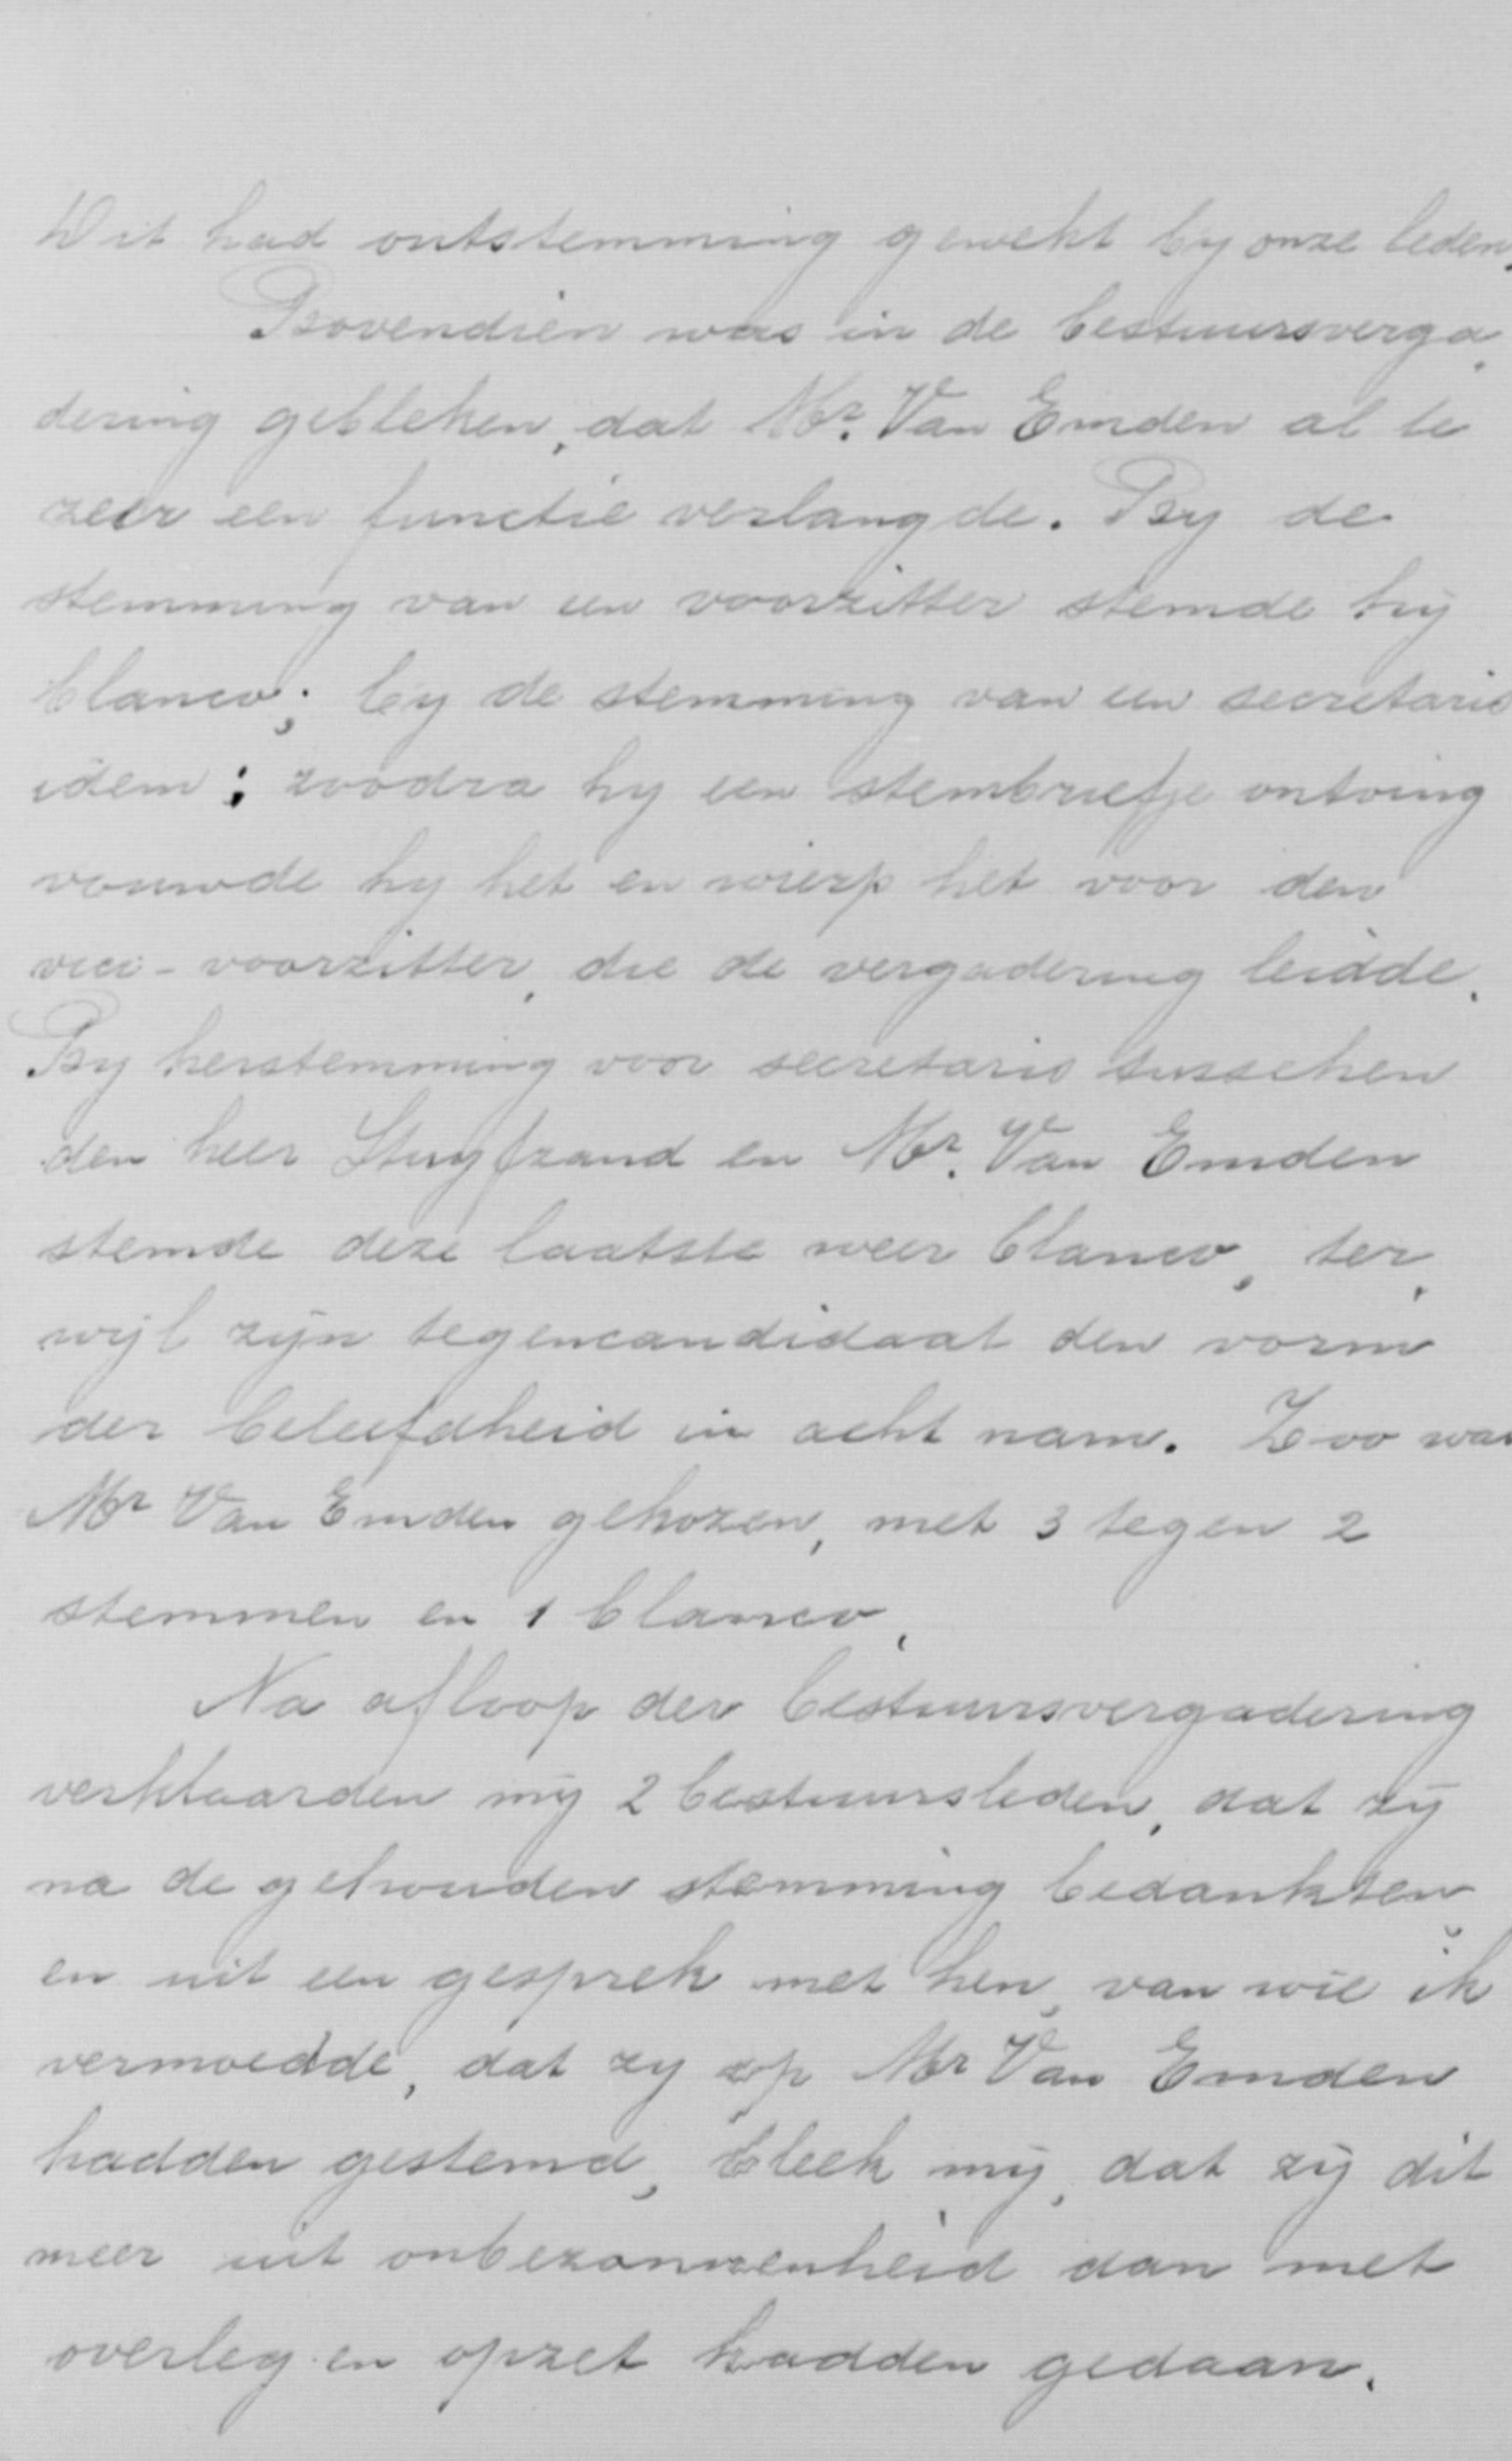 Dit had ontstemming gewekt by onze leden.
Bovendien was in de bestuursverga-
dering gebleken, dat Mr. Van Emden al te
zeer een functie verlangde. By de
stemming van een voorzitter stemde hij
blanco; by de stemming van een secretaris
idem; zoodra hy een stembriefje ontving
vouwde hy het en wierp het voor den
vice-voorzitter, die de vergadering leidde.
By herstemming voor secretaris tusschen
den heer Stuyfzand en Mr. Van Emden
stemde deze laatste weer blanco, ter-
wijl zijn tegencandidaat den vorm
der beleefdheid in acht nam. Zoo was
Mr Van Emden gekozen, met 3 tegen 2
stemmen en 1 blanco.
Na afloop der bestuursvergadering
verklaarden mij 2 bestuursleden, dat zij
na de gehouden stemming bedankten
en uit een gesprek met hen, van wie ik
vermoedde, dat zy op Mr Van Emden
hadden gestemd, bleek mij, dat zij dit
meer uit onbezonnenheid dan met
overleg en opzet hadden gedaan.